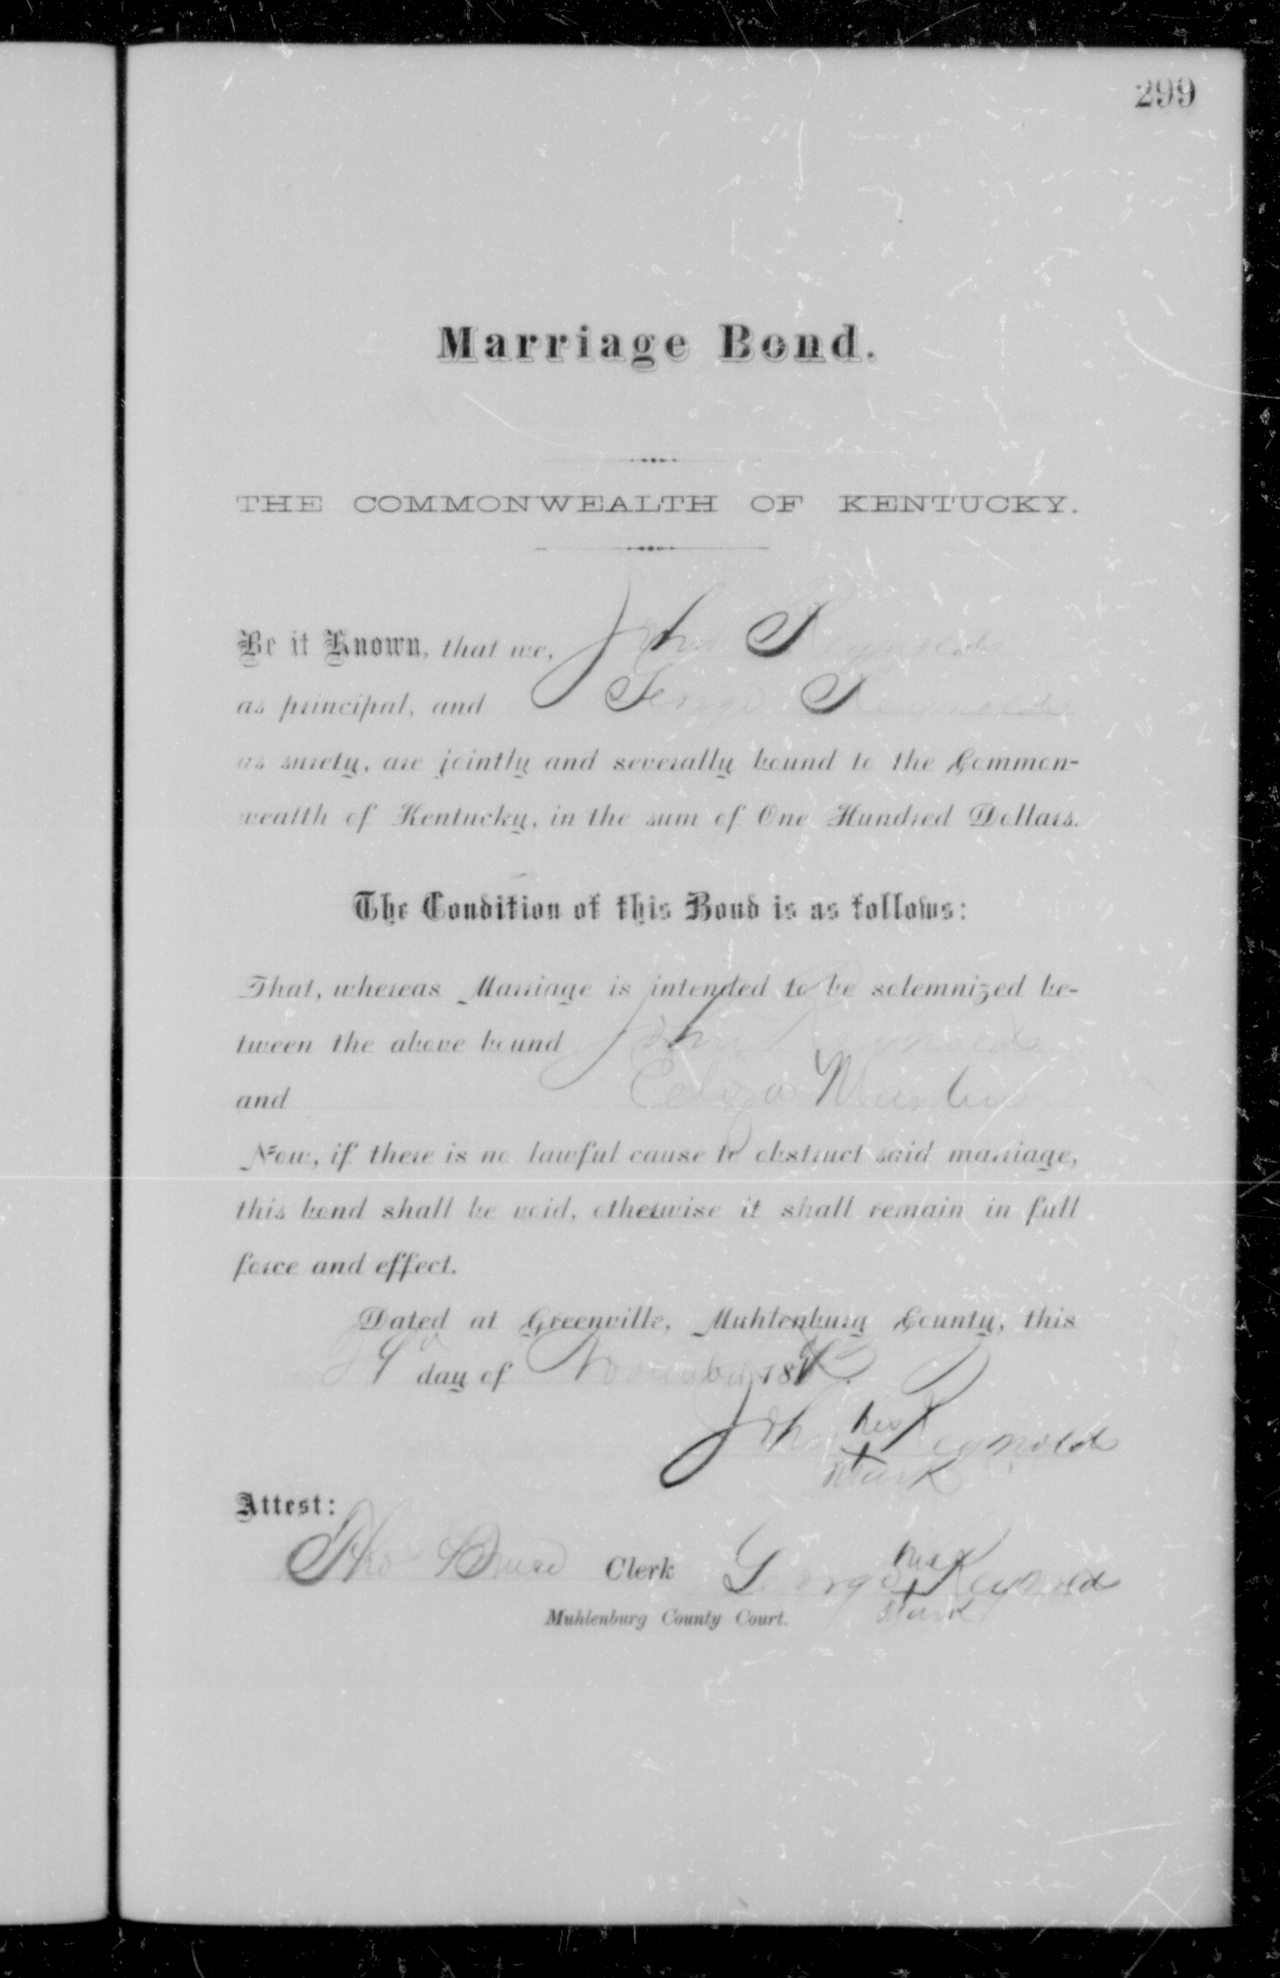 299
Marriage Bond.
THE COMMONWEALTH OF KENTUCKY.
Be it Known, that we, John Reynolds
as principal, and George Reynolds
as surety, are jointly and severally bound to the Common-
wealth of Kentucky, in the sum of One Hundred Dollars.
The Condition of this Bond is as follows:
That, whereas Marriage is intended to be solemnized be-
tween the above bound John Reynolds
and Martin
Now, if there is no lawful cause to obstruct said marriage,
this bond shall be void, otherwise it shall remain in full
force and effect.
Dated at Greenville, Muhlenburg County, this
day of November 18
his
John + Reynolds
Mark
Attest:
his
Tho Clerk George + Reynolds
Mark
Muhlenburg County Court.